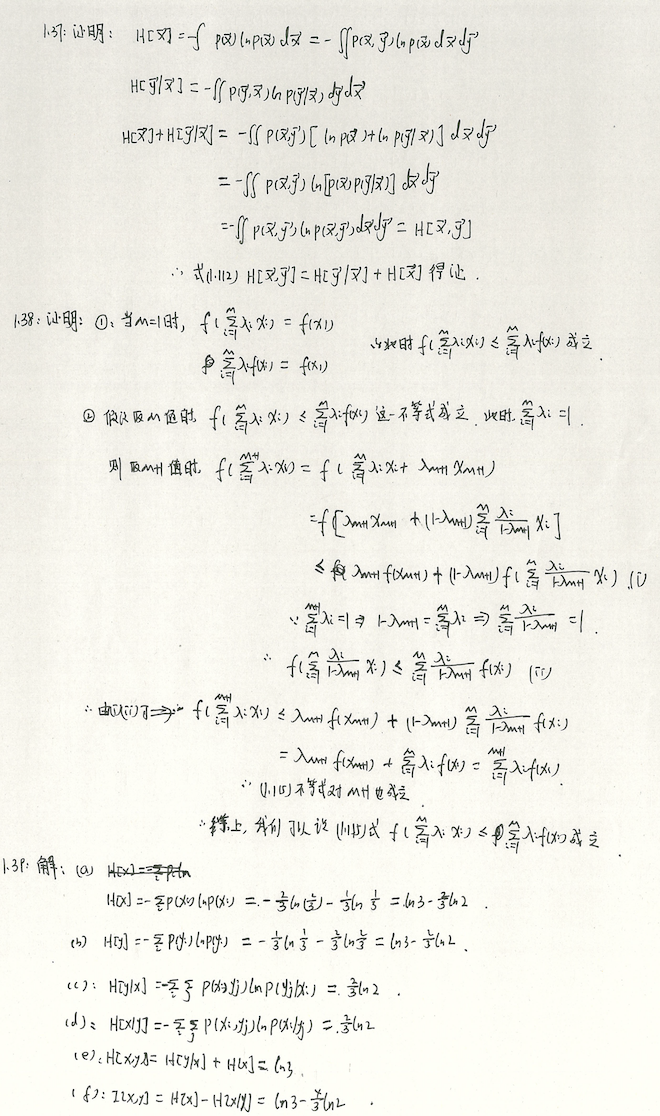 1.37: 证明: H[x⃗] = -∫ p(x⃗) ln p(x⃗) dx⃗ = -∬ p(x⃗, y⃗) ln p(x⃗) dx⃗ dy⃗
H[y⃗|x⃗] = -∬ p(y⃗, x⃗) ln p(y⃗|x⃗) dy⃗ dx⃗
H[x⃗] + H[y⃗|x⃗] = -∬ p(x⃗, y⃗) [ ln p(x⃗) + ln p(y⃗|x⃗) ] dx⃗ dy⃗
= -∬ p(x⃗, y⃗) ln [p(x⃗) p(y⃗|x⃗)] dx⃗ dy⃗
= -∬ p(x⃗, y⃗) ln p(x⃗, y⃗) dx⃗ dy⃗ = H[x⃗, y⃗]
∴ 式(1.112) H[x⃗, y⃗] = H[y⃗|x⃗] + H[x⃗] 得证.
1.38: 证明: ①: 当M=1时, f(∑_{i=1}^{M} λi xi) = f(x1)
∑_{i=1}^{M} λi f(xi) = f(x1) ∴此时 f(∑_{i=1}^{M} λi xi) ≤ ∑_{i=1}^{M} λi f(xi) 成立.
② 假设取M值时, f(∑_{i=1}^{M} λi xi) ≤ ∑_{i=1}^{M} λi f(xi) 这一不等式成立. 此时 ∑_{i=1}^{M} λi = 1.
则 取M+1值时, f(∑_{i=1}^{M+1} λi xi) = f(∑_{i=1}^{M} λi xi + λM+1 xM+1)
= f[λM+1 xM+1 + (1-λM+1) ∑_{i=1}^{M} λi/(1-λM+1) xi]
≤ λM+1 f(xM+1) + (1-λM+1) f(∑_{i=1}^{M} λi/(1-λM+1) xi) (i)
∵ ∑_{i=1}^{M+1} λi = 1 ⇒ 1-λM+1 = ∑_{i=1}^{M} λi ⇒ ∑_{i=1}^{M} λi/(1-λM+1) = 1.
∴ f(∑_{i=1}^{M} λi/(1-λM+1) xi) ≤ ∑_{i=1}^{M} λi/(1-λM+1) f(xi) (ii)
∴ 由(i)(ii) ⇒ f(∑_{i=1}^{M+1} λi xi) ≤ λM+1 f(xM+1) + (1-λM+1) ∑_{i=1}^{M} λi/(1-λM+1) f(xi)
= λM+1 f(xM+1) + ∑_{i=1}^{M} λi f(xi) = ∑_{i=1}^{M+1} λi f(xi)
∴ (1.115)不等式对M+1也成立.
∴综上, 我们可以说 (1.115)式 f(∑_{i=1}^{M} λi xi) ≤ ∑_{i=1}^{M} λi f(xi) 成立.
1.39: 解: (a)
H[x] = -∑_i p(xi) ln p(xi) = -2/3 ln(2/3) - 1/3 ln 1/3 = ln3 - 2/3 ln2.
(b) H[y] = -∑_i p(yi) ln p(yi) = -1/3 ln 1/3 - 2/3 ln 2/3 = ln3 - 2/3 ln2.
(c): H[y|x] = -∑_i ∑_j p(xi, yj) ln p(yj|xi) = 2/3 ln2.
(d): H[x|y] = -∑_i ∑_j p(xi, yj) ln p(xi|yj) = 2/3 ln2
(e): H[x,y] = H[y|x] + H[x] = ln3.
(f): I[x,y] = H[x] - H[x|y] = ln3 - 4/3 ln2.